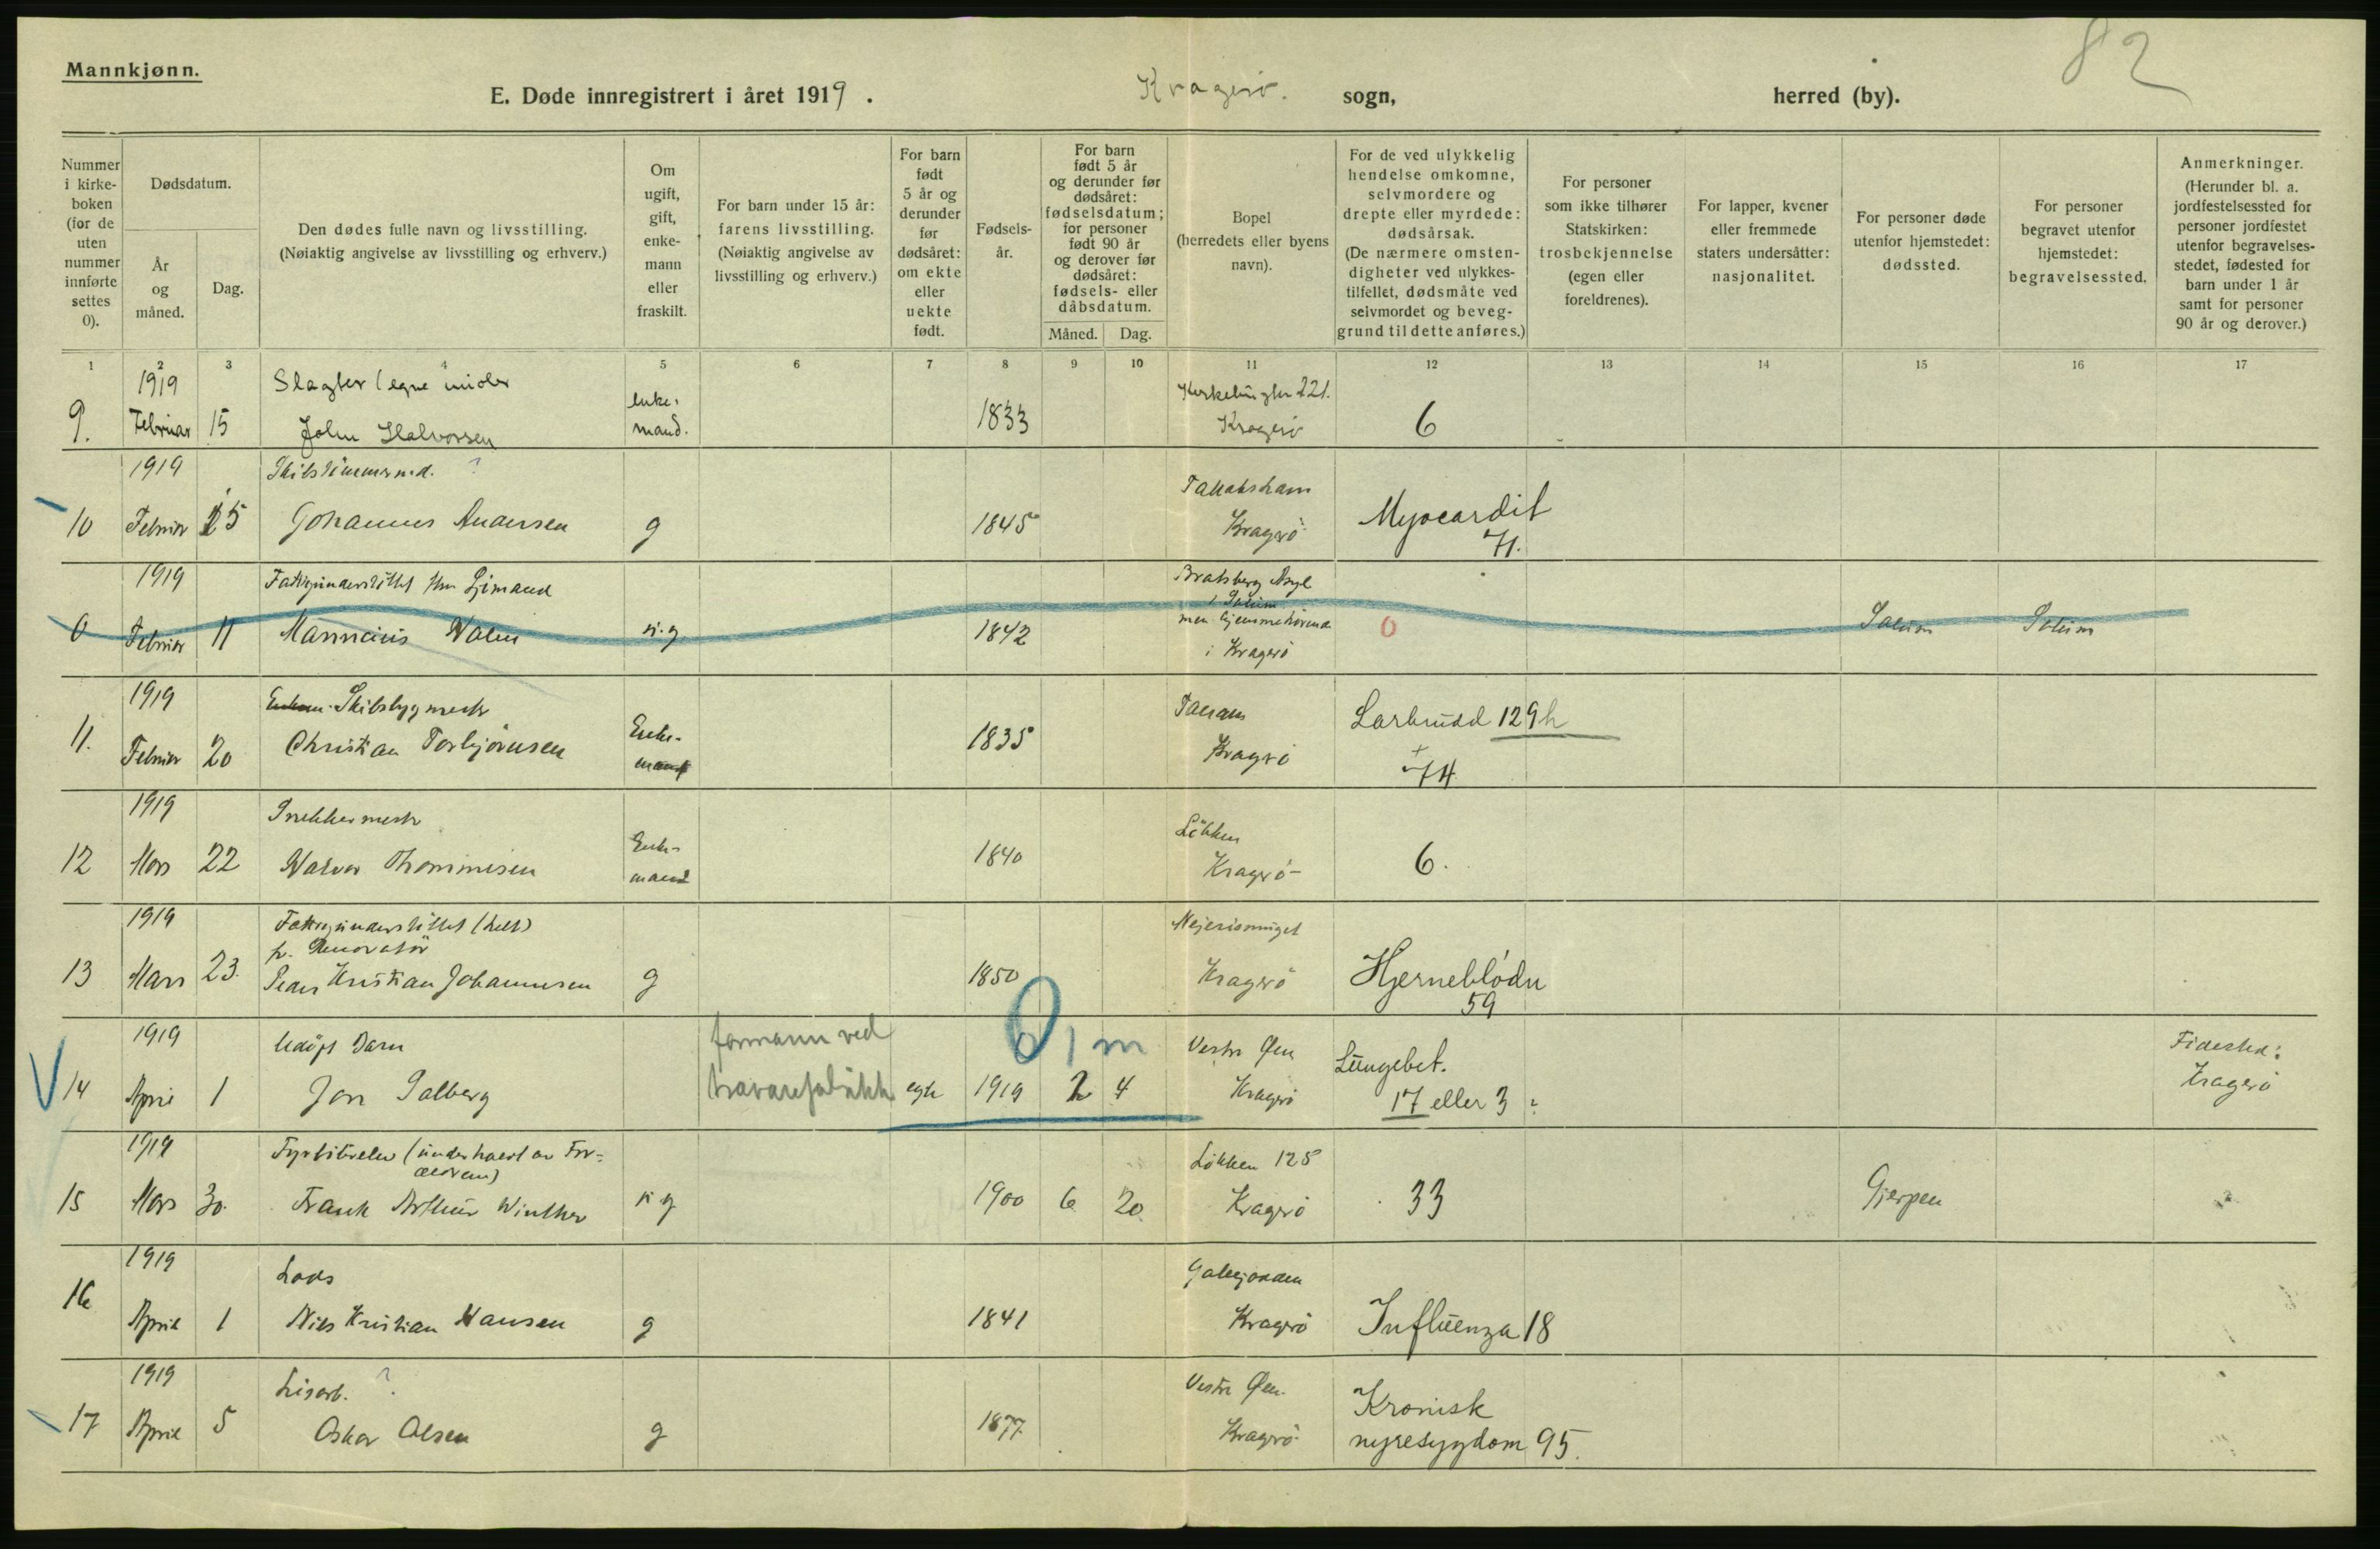 82
Mannkjønn.
E. Døde innregistrert i året 1919. Kragerö. sogn, herred (by).
Nummer i kirke-boken (for de uten nummer innførte settes 0).
Dødsdatum.
År og måned.
Dag.
Den dødes fulle navn og livsstilling.
(Nøiaktig angivelse av livsstilling og erhverv.)
Om ugift, gift, enke-mann eller fraskilt.
For barn under 15 år: farens livsstilling.
(Nøiaktig angivelse av livsstilling og erhverv.)
For barn født 5 år og derunder før dødsåret: om ekte eller uekte født.
Fødsels-år.
For barn født 5 år og derunder før dødsåret: fødselsdatum; for personer født 90 år og derover før dødsåret: fødsels- eller dåbsdatum.
Måned. Dag.
Bopel (herredets eller byens navn).
For de ved ulykkelig hendelse omkomne, selvmordere og drepte eller myrdede: dødsårsak.
(De nærmere omsten-digheter ved ulykkes-tilfellet, dødsmåte ved selvmordet og beveg-grund til dette anføres.)
For personer som ikke tilhører Statskirken: trosbekjennelse (egen eller foreldrenes).
For lapper, kvener eller fremmede staters undersåtter: nasjonalitet.
For personer døde utenfor hjemstedet: dødssted.
For personer begravet utenfor hjemstedet: begravelsessted.
Anmerkninger.
(Herunder bl. a. jordfestelsessted for personer jordfestet utenfor begravelses-stedet, fødested for barn under 1 år samt for personer 90 år og derover.)
1 2 3 4 5 6 7 8 9 10 11 12 13 14 15 16 17
1919 Slagter (egne midler 221.
9. Februar 15 John Halvorsen enke-mand. 1833 Kragerö 6
1919 Skibstömmermd. ?
10 Februar 15 Johannes Andersen g 1845 Kragerö Myocardit 71.
1919 Fattigunderstöttet Sjömand Bratsberg Asyl i Solum
0 Februar 11 u.g 1842 men hjemmehörende i Kragerö 0 Solum Solum
1919 Skibsbygmestr
11. Februar 20 Christian Torbjörnsen Enke-mand 1835 Kragerö 129h
+ 74
1919 Snekkermestr Lökken
12 Mars 22 Halvor Thommesen Enke-mand 1840 Kragerö 6.
1919 Fattigunderstöttet (helt) Mejerismuget
f. Renovatör
13 Mars 23. Peder Kristian Johannesen g 1850 Kragerö Hjerneblödn 59
1919 Udöpt Barn formann ved 0 1 m Vestre Øen Lungebet. Födested:
14 April 1 Jon Solberg egte 1919 2 4 Kragerö 17 eller 3? Kragerö
1919 Fyrbödereleve (underholdt av For-ældrene) Lökken 125
15 Mars 30. Frank Arthur Winther u g 1900 6 20. Kragerö 33 Gjerpen
1919 Lods Galeijorden
16 April 1 Nils Kristian Hansen g 1841 Kragerö Influenza 18
1919 Lisarb. ? Vestre Øen. Kronisk
17 April 5 Oskar Olsen g 1877 Kragerö nyresygdom 95.